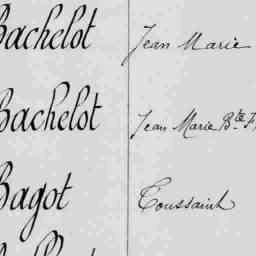 Bachelot Jean Marie
Bachelot Jean Marie Bte
Bagot Toussaint